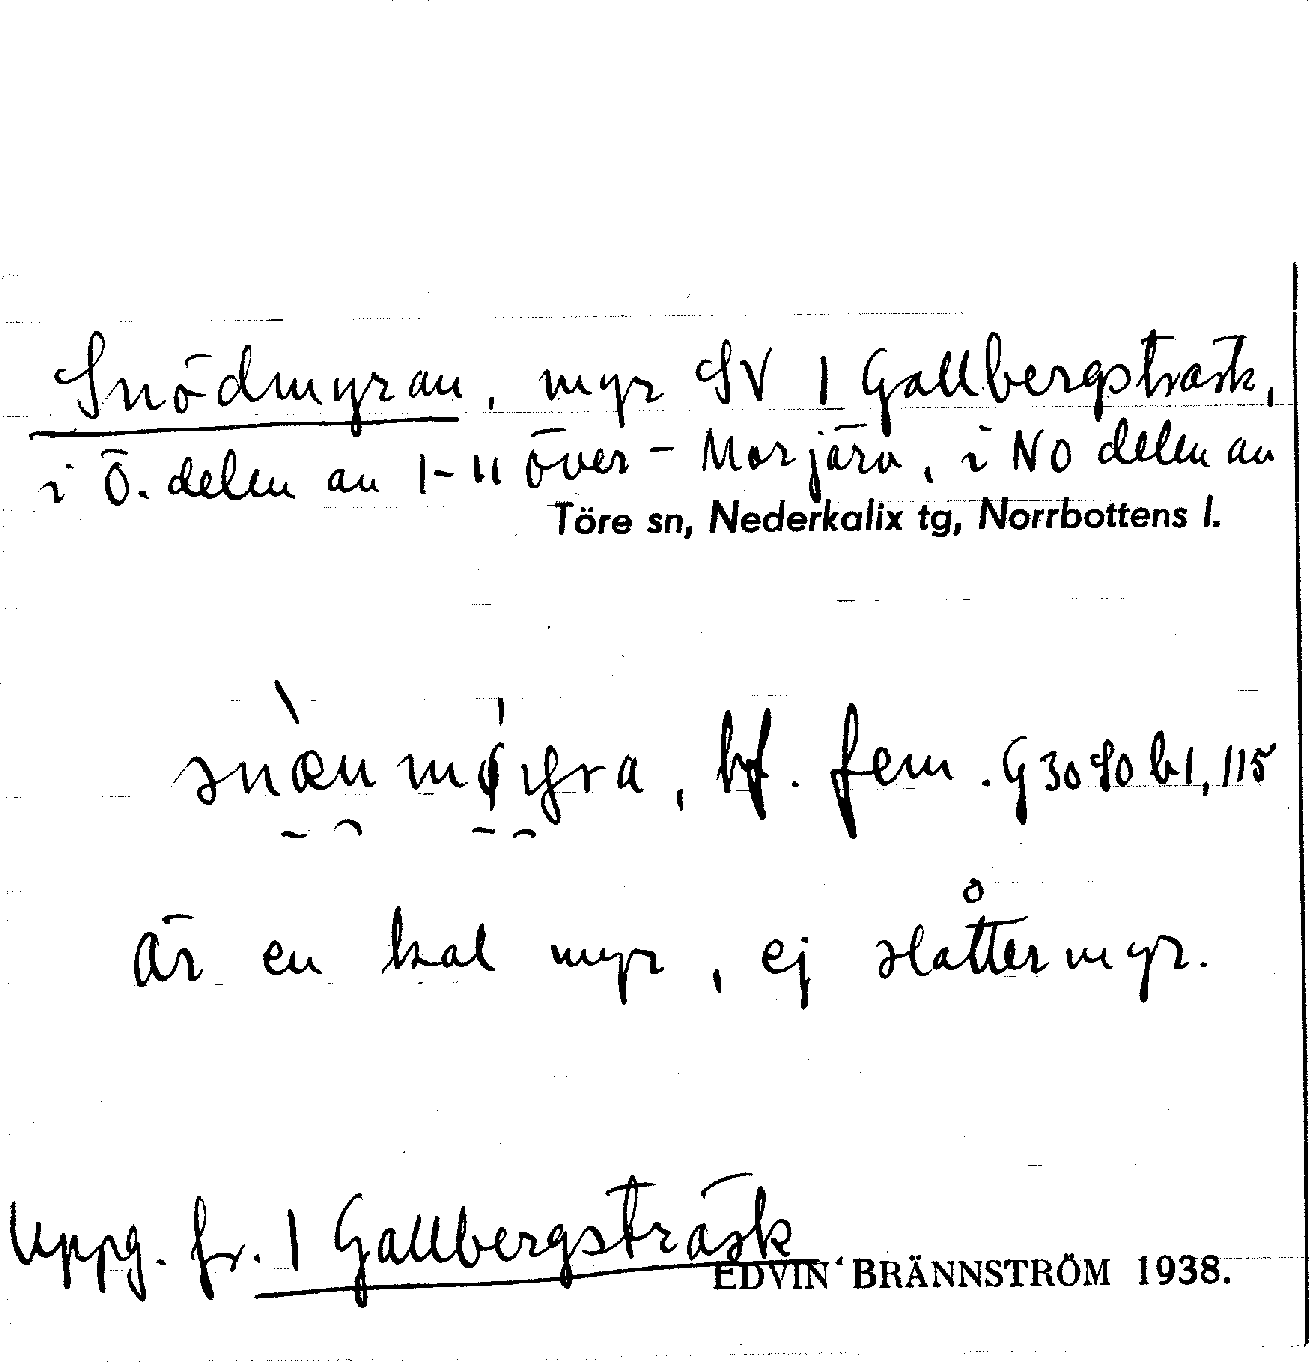 Snödmyran, myr SV 1 Gallbergsträsk,
i Ö. delen av 1-11 Över-Morjärv, i NO delen av
Töre sn, Nederkalix tg, Norrbottens l.
bf. fem. G 30 SO b1, 115
är en kal myr, ej slåttermyr.
Uppg. fr. 1 Gallbergsträsk
EDVIN BRÄNNSTRÖM 1938.